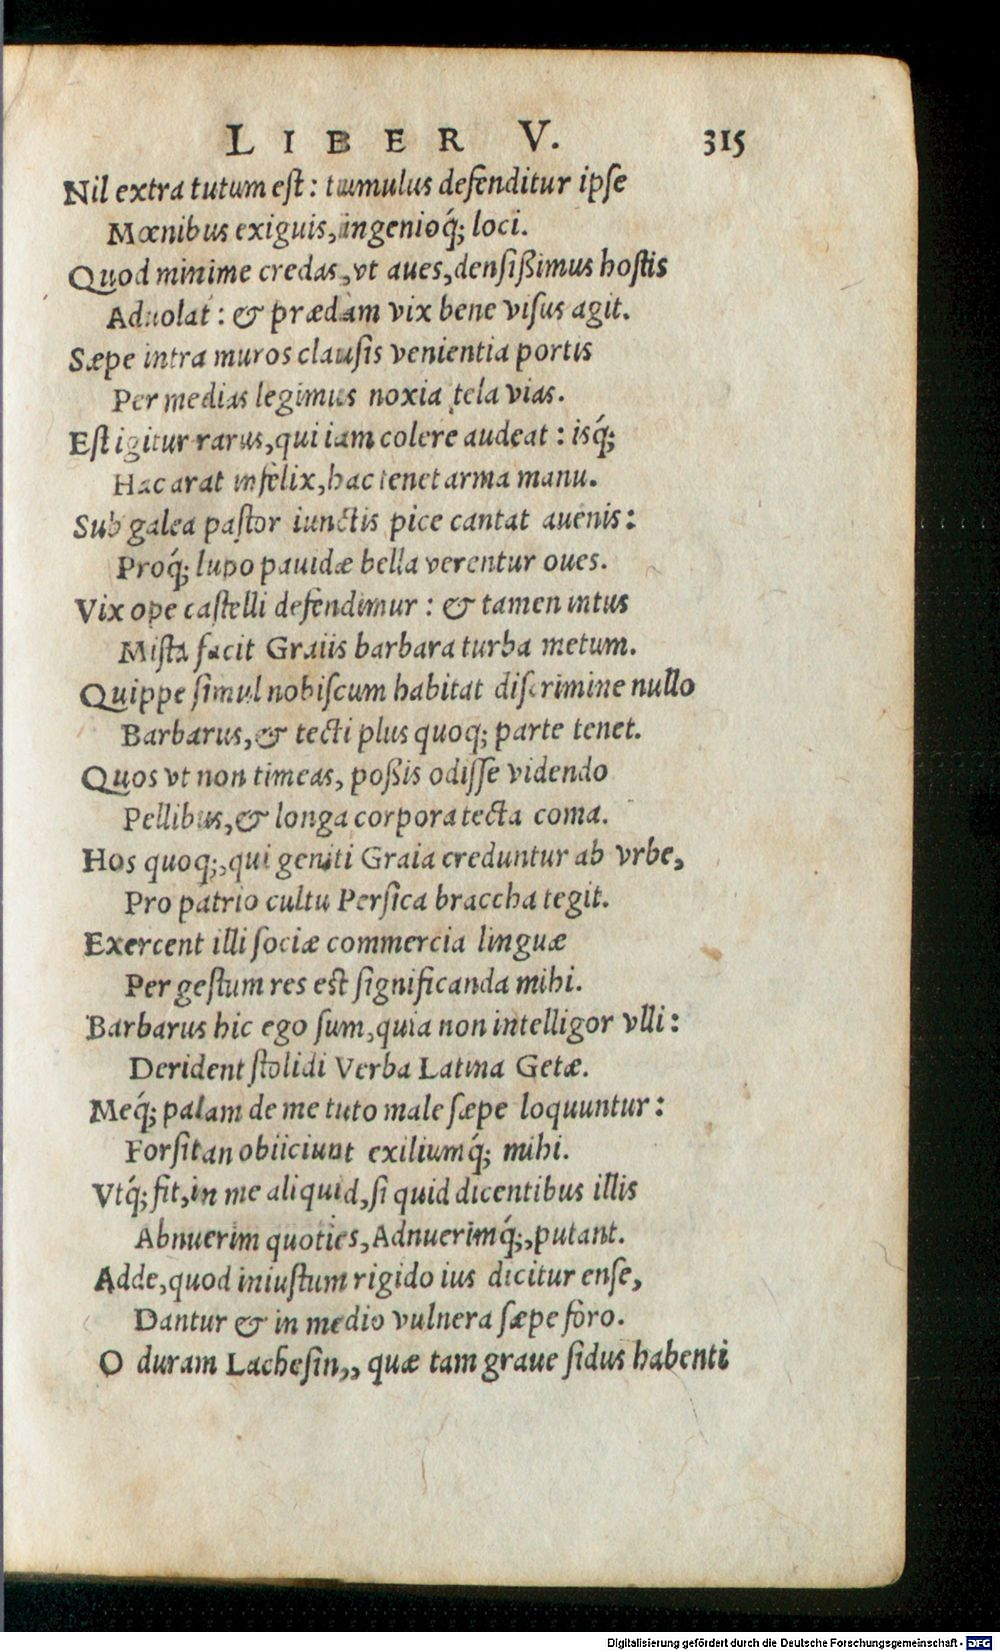 LIBER V. 315
Nil extra tutum est: tumulus defenditur ipse
Mœnibus exiguis, ingenioq́; loci.
Quod minime credas, vt aues, densißimus hostis
Aduolat: & prædam vix bene visus agit.
Sæpe intra muros clausis venientia portis
Per medias legimus noxia tela vias.
Est igitur rarus, qui iam colere audeat: isq́;
Hac arat infelix, hac tenet arma manu.
Sub galea pastor iunctis pice cantat auenis:
Proq́; lupo pauidæ bella verentur oues.
Vix ope castelli defendimur: & tamen intus
Mista facit Graiis barbara turba metum.
Quippe simul nobiscum habitat discrimine nullo
Barbarus, & tecti plus quoq; parte tenet.
Quos vt non timeas, poßis odisse videndo
Pellibus, & longa corpora tecta coma.
Hos quoq;, qui geniti Graia creduntur ab vrbe,
Pro patrio cultu Persica braccha tegit.
Exercent illi sociæ commercia linguæ
Per gestum res est significanda mihi.
Barbarus hic ego sum, quia non intelligor vlli:
Derident stolidi Verba Latina Getæ.
Meq́; palam de me tuto male sæpe loquuntur:
Forsitan obiiciunt exiliumq́; mihi.
Vtq́; fit, in me aliquid, si quid dicentibus illis
Abnuerim quoties, Adnuerimq́;, putant.
Adde, quod iniustum rigido ius dicitur ense,
Dantur & in medio vulnera sæpe foro.
O duram Lachesin,, quæ tam graue sidus habenti
Digitalisierung gefördert durch die Deutsche Forschungsgemeinschaft - DFG